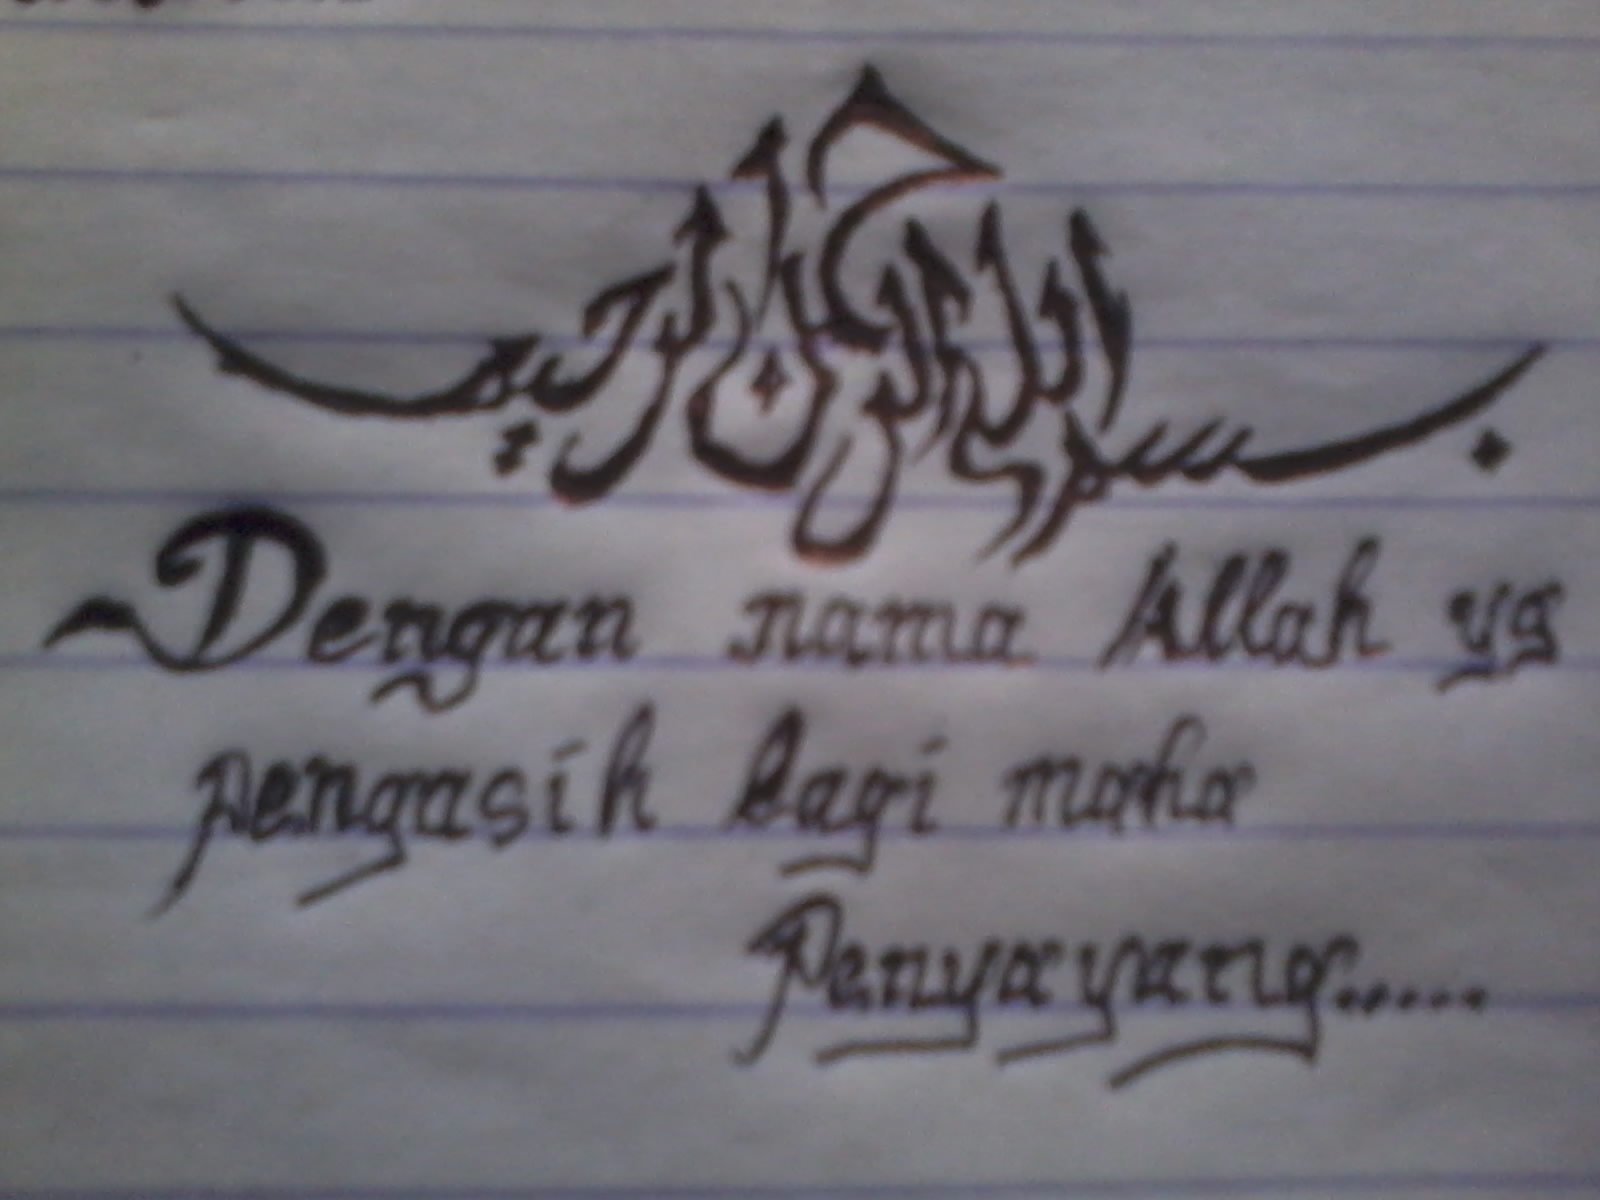 بسم الله الرحمن الرحيم
Dengan nama Allah yg
pengasih lagi maha
Penyayang.....